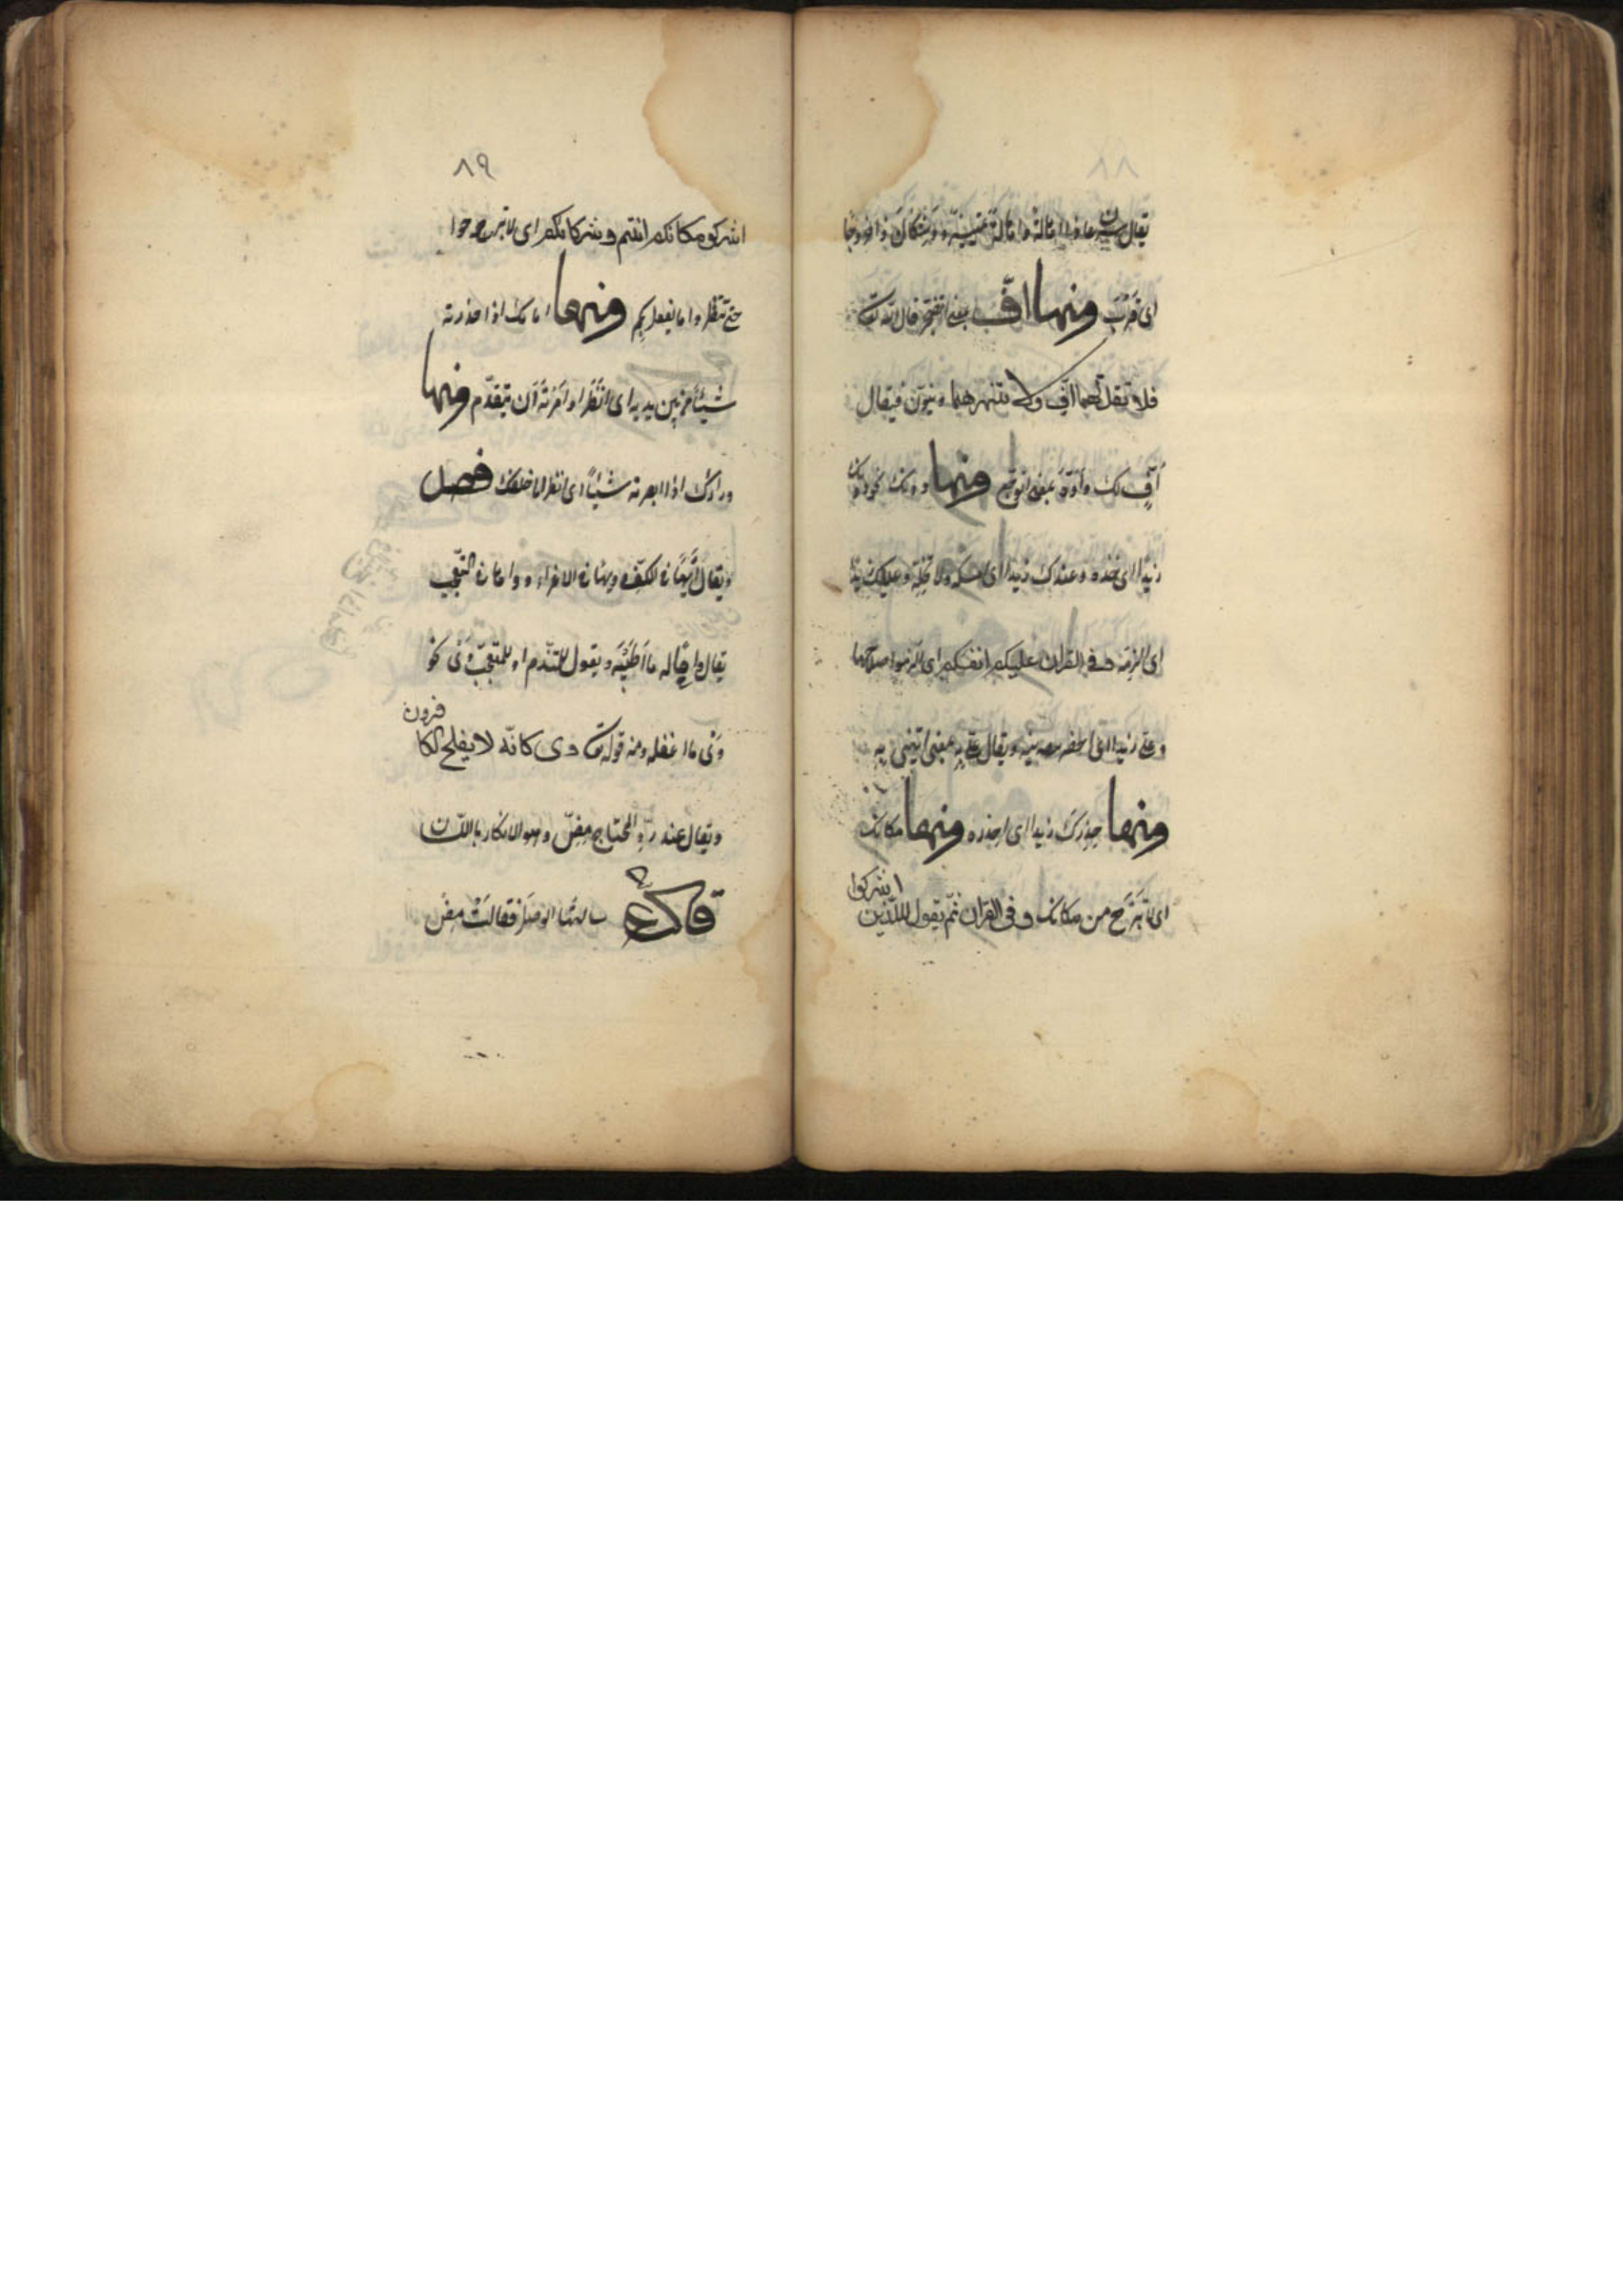 ٨٨
يقال
اى قرب ومنها افّ بمعنى اتضجر قال الله تعالى
فلا تقل لهما افّ ولا تنهرهما وينوّن فيقال
اُفٍّ لك واَوَّه بمعنى اتوجّع ومنها دونك
زيدا اى خذه وعندك زيدا اى امسكه ولا تخلّه وعليك زيدا
اى الزمه وفى القران عليكم انفسكم اى الزموا صلاحها
وعلىّ زيدا اى ويقال علىّ به بمعنى ايتنى به
ومنها حذرك زيدا اى احذره ومنها مكانك
اى لا تبرح من مكانك وفى القران ثمّ يقول للذين اشركوا
٨٩
اشركو مكانكم انتم وشركائكم اى لا تبرحوا
حتى تنظروا ما يفعل بكم ومنها امامك اذا حذرته
شيئا من بين يديه اى انظر او امرته ان يتقدّم ومنها
وراءك اذا ابصرته شيئاً اى انظر الى خلفك فصل
ويقال ايهًا فى الكفّ وويهًا فى الاغراء وواها فى التعجّب
يقال واهًا له ما اطيبه ويقول المتندّم او المتعجّب وَىْ نحو
وَىْ ما اغفله ومنه قوله تعالى وى كانّه لا يفلح الكافرون
ويقال عند ردّ المحتاج مِضّ وهو الانكار باللسان
قال ع سالتها الوصل فقالت مضّ